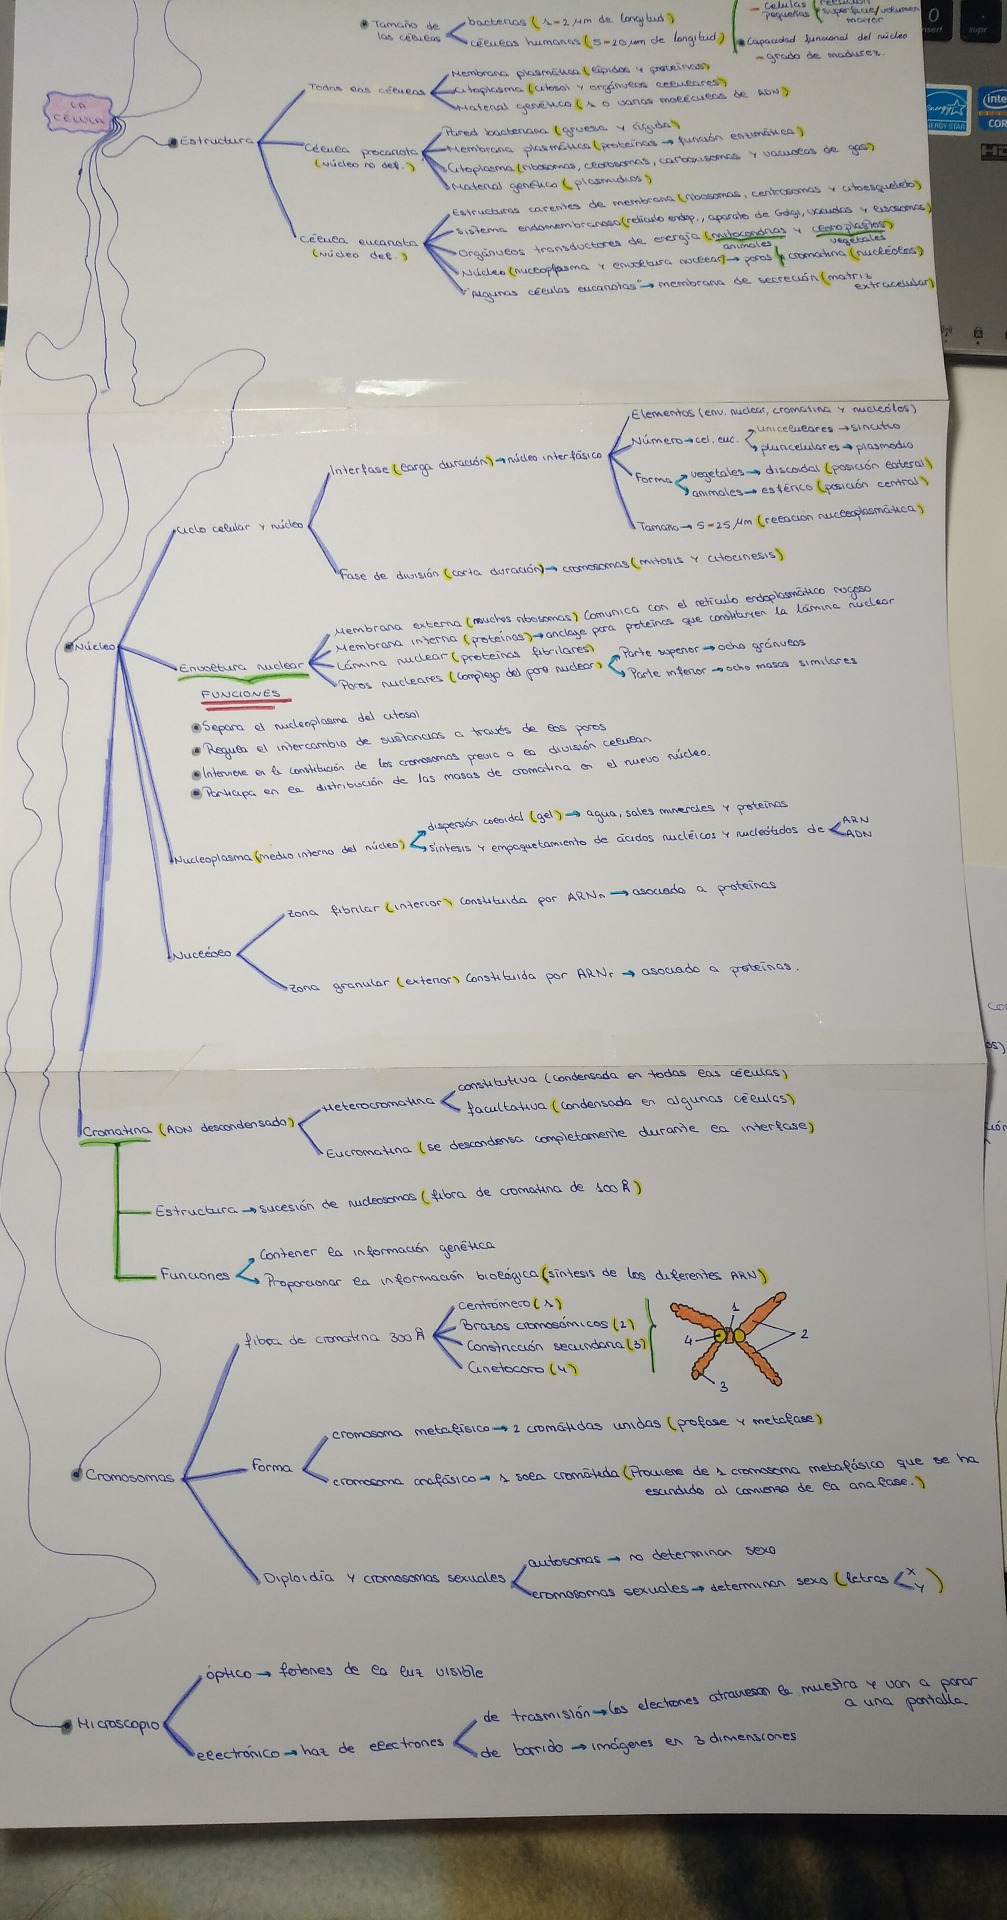 Tamaño de las células
bacterias (1-2 µm de longitud)
células humanas (5-20 µm de longitud)
- células pequeñas
superficie/volumen
mayor
Capacidad funcional del núcleo
- grado de madurez.
LA CÉLULA
Estructura
Todas las células
Membrana plasmática (lípidos y proteínas)
Citoplasma (citosol y orgánulos celulares)
Material genético (1 o varias moléculas de ADN)
Célula procariota
(Núcleo no def.)
Pared bacteriana (gruesa y rígida)
Membrana plasmática (proteínas → función enzimática)
Citoplasma (ribosomas, clorosomas, carboxisomas y vacuolas de gas)
Material genético (plasmidios)
Célula eucariota
(Núcleo def.)
Estructuras carentes de membrana (ribosomas, centrosomas y citoesqueleto)
Sistema endomembranoso (retículo endop., aparato de Golgi, vacuolas y lisosomas)
Orgánulos transductores de energía (mitocondrias y cloroplastos)
animales
vegetales
Núcleo (nucleoplasma y envoltura nuclear) → poros y cromatina (nucléolos)
"Algunas células eucariotas" → membrana de secreción (matriz extracelular)
Núcleo
Ciclo celular y núcleo
Interfase (larga duración) → núcleo interfásico
Elementos (env. nuclear, cromatina y nucleólos)
Número → cel. euc.
unicelulares → sincitio
pluricelulares → plasmodio
Forma
vegetales → discoidal (posición lateral)
animales → esférico (posición central)
Tamaño → 5-25 µm (relación nucleoplasmática)
Fase de división (corta duración) → cromosomas (mitosis y citocinesis)
Envoltura nuclear
Membrana externa (muchos ribosomas) Comunica con el retículo endoplasmático rugoso
Membrana interna (proteínas) → anclaje para proteínas que constituyen la lámina nuclear
Lámina nuclear (proteínas fibrilares)
Poros nucleares (complejo del poro nuclear)
Parte superior → ocho gránulos
Parte inferior → ocho masas similares
FUNCIONES
Separa el nucleoplasma del citosol
Regula el intercambio de sustancias a través de los poros
Interviene en la constitución de los cromosomas previa a la división celular
Participa en la distribución de las masas de cromatina en el nuevo núcleo.
Nucleoplasma (medio interno del núcleo)
dispersión coloidal (gel) → agua, sales minerales y proteínas
síntesis y empaquetamiento de ácidos nucléicos y nucleótidos de
ARN
ADN
Nucléolo
Zona fibrilar (interior) Constituida por ARNn → asociado a proteínas
Zona granular (exterior) Constituida por ARNr → asociado a proteínas.
Cromatina (ADN descondensado)
Heterocromatina
constitutiva (condensada en todas las células)
facultativa (condensada en algunas células)
Eucromatina (se descondensa completamente durante la interfase)
Estructura → sucesión de nucleosomas (fibra de cromatina de 100 Å)
Funciones
Contener la información genética
Proporcionar la información biológica (síntesis de los diferentes ARN)
Cromosomas
fibra de cromatina 300 Å
Centrómero (1)
Brazos cromosómicos (2)
Constricción secundaria (3)
Cinetocoro (4)
1
2
3
4
Forma
cromosoma metafísico → 2 cromátidas unidas (profase y metafase)
cromosoma anafásico → 1 sola cromátida (Proviene de 1 cromosoma metafásico que se ha
escindido al comienzo de la anafase.)
Diploidía y cromosomas sexuales
autosomas → no determinan sexo
cromosomas sexuales → determinan sexo (letras
X
Y)
Microscopio
óptico → fotones de la luz visible
electrónico → haz de electrones
de trasmisión → los electrones atraviesan la muestra y van a parar
a una pantalla.
de barrido → imágenes en 3 dimensiones
0
supr
intel
ENERGY STAR
COR